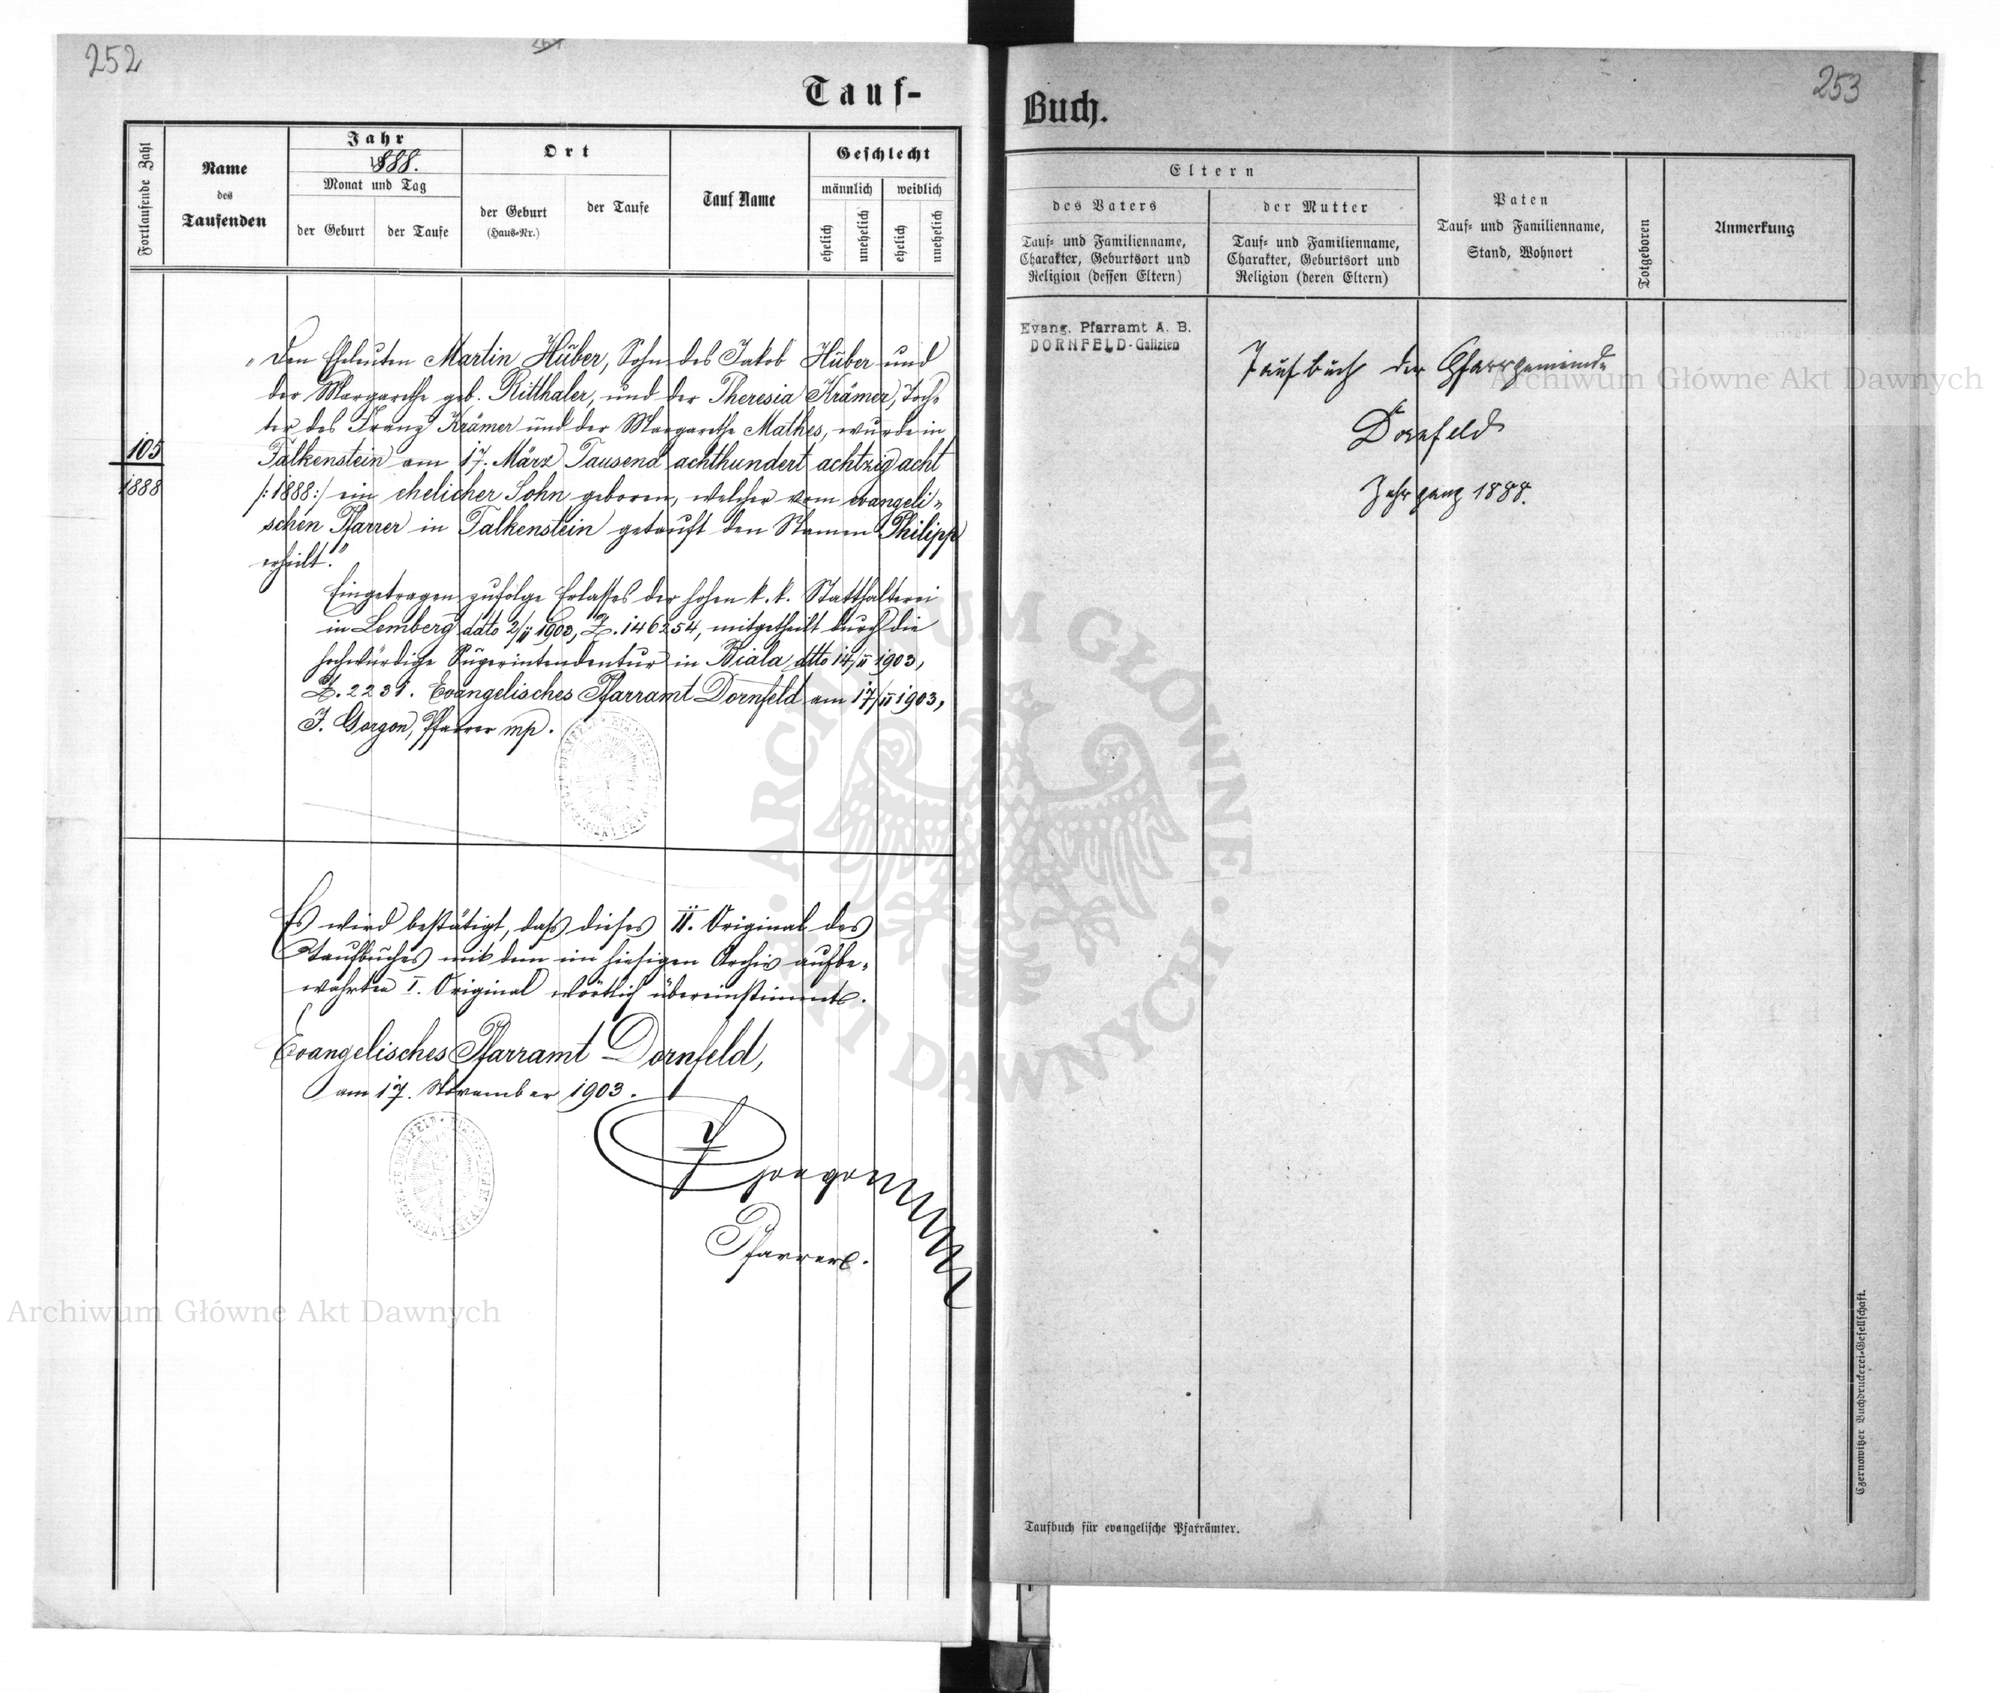 252
Tauf-
Fortlaufende Zahl
Name
des
Taufenden
Jahr
1888.
Monat und Tag
der Geburt
der Taufe
Ort
der Geburt
(Haus-Nr.)
der Taufe
Tauf Name
Geschlecht
männlich
weiblich
ehelich
unehelich
ehelich
unehelich
105
1888
„Den Eheleuten Martin Huber, Sohn des Jakob Huber und
der Margarethe geb. Ritthaler, und der Theresia Krämer, Toch-
ter des Franz Krämer und der Margarethe Mathes, wurde in
Falkenstein am 17. März Tausend achthundert achtzig acht
/:1888:/ ein ehelicher Sohn geboren, welcher vom evangeli-
schen Pfarrer in Falkenstein getauft den Namen Philipp
erhielt."
Eingetragen zufolge Erlasses der hohen k. k. Statthalterei
in Lemberg dato 2/11 1903, Z. 146254, mitgetheilt durch die
hochwürdige Superintendentur in Biala dtto 14/11 1903,
Z. 2231. Evangelisches Pfarramt Dornfeld am 17/11 1903,
J. Gorgon, Pfarrer mp.
Es wird bestätigt, daß dieses II. Original des
Taufbuches mit dem im hiesigen Archiv aufbe-
wahrten I. Original wörtlich übereinstimmt.
Evangelisches Pfarramt Dornfeld,
am 17. November 1903.
J Gorgon
Pfarrer.
253
Buch.
Eltern
des Vaters
Tauf- und Familienname,
Charakter, Geburtsort und
Religion (dessen Eltern)
der Mutter
Tauf- und Familienname,
Charakter, Geburtsort und
Religion (deren Eltern)
Paten
Tauf- und Familienname,
Stand, Wohnort
Totgeboren
Anmerkung
Evang. Pfarramt A. B.
DORNFELD-Galizien
Taufbuch der Pfarrgemeinde
Dornfeld
Jahrgang 1888.
Taufbuch für evangelische Pfarrämter.
Czernowitzer Buchdruckerei-Gesellschaft.
Archiwum Główne Akt Dawnych
Archiwum Główne Akt Dawnych
ARCHIWUM GŁÓWNE AKT DAWNYCH